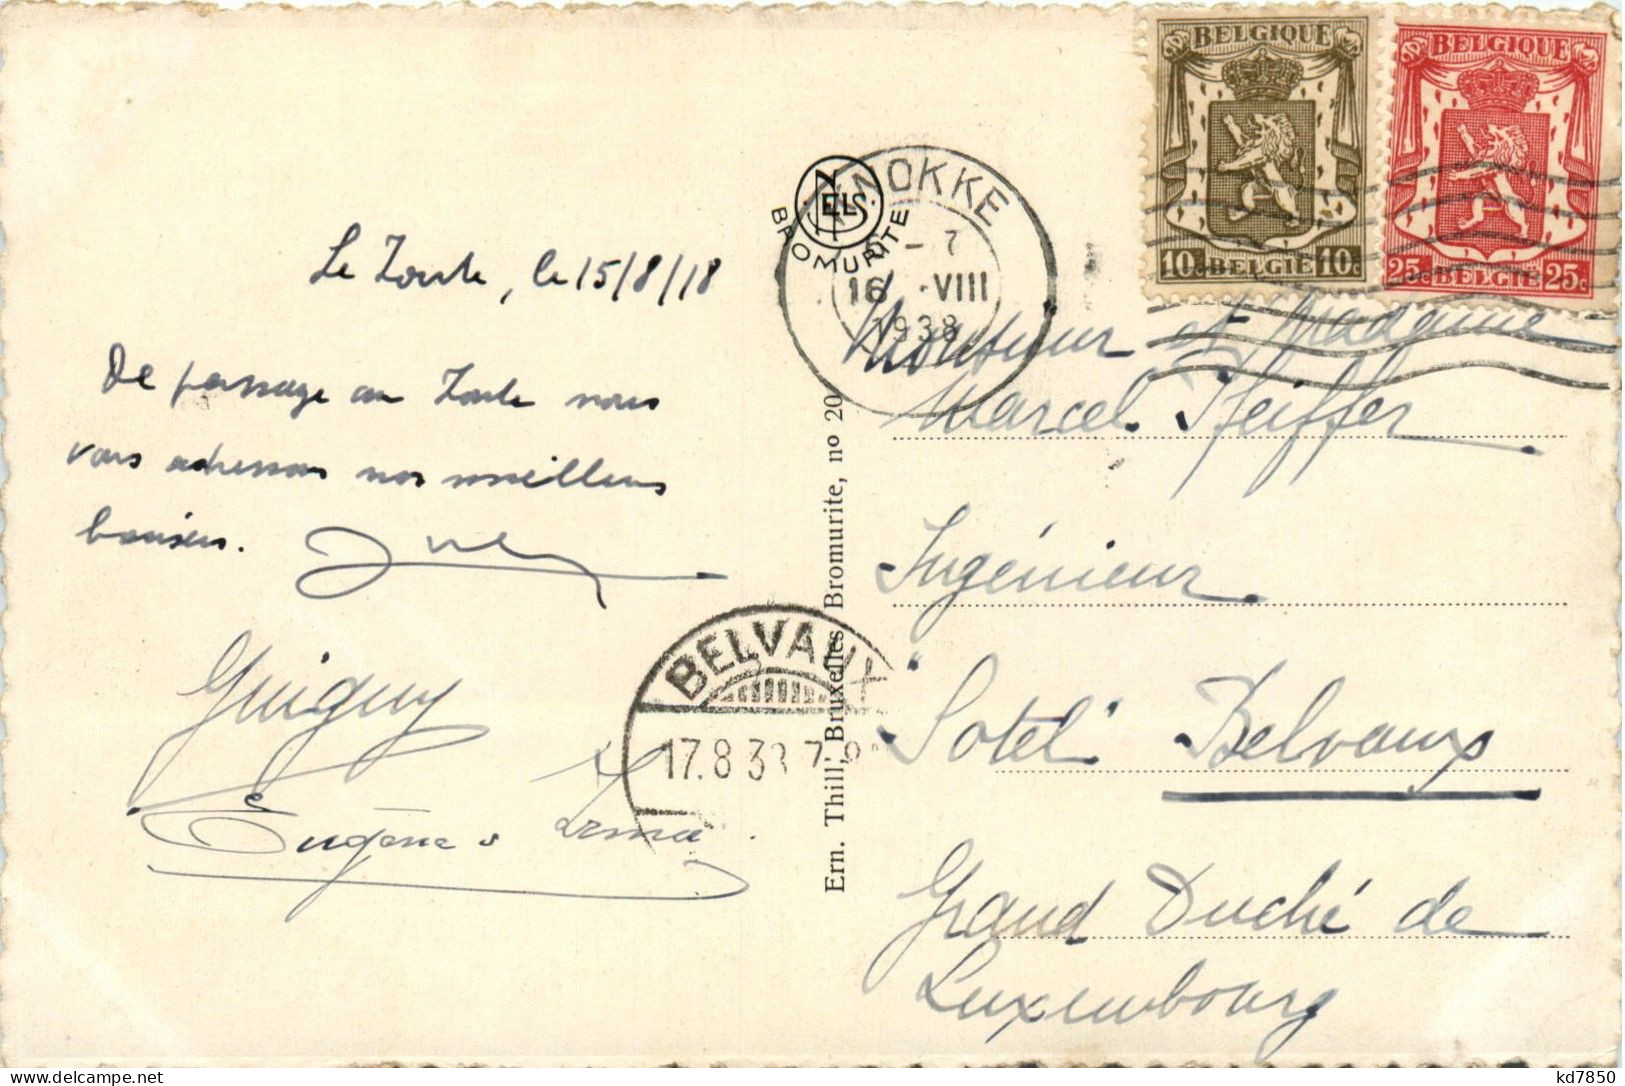 BELGIQUE
10c BELGIË 10c
BELGIQUE
25c BELGIË 25c
KNOKKE
6 - 7
16 · VIII
1938
NELS
BROMURITE
Le Zoute, le 15/8/18
De passage au Zoute nous
vous adressons nos meilleurs
baisers.
Guiguy
Eugène & Irma.
BELVAUX
17.8.38 7-9
Ern. Thill, Bruxelles Bromurite, no 20
Monsieur et Madame
Marcel Pfeiffer
Ingénieur
"Sotel" Belvaux
Grand Duché de
Luxembourg
kd7850